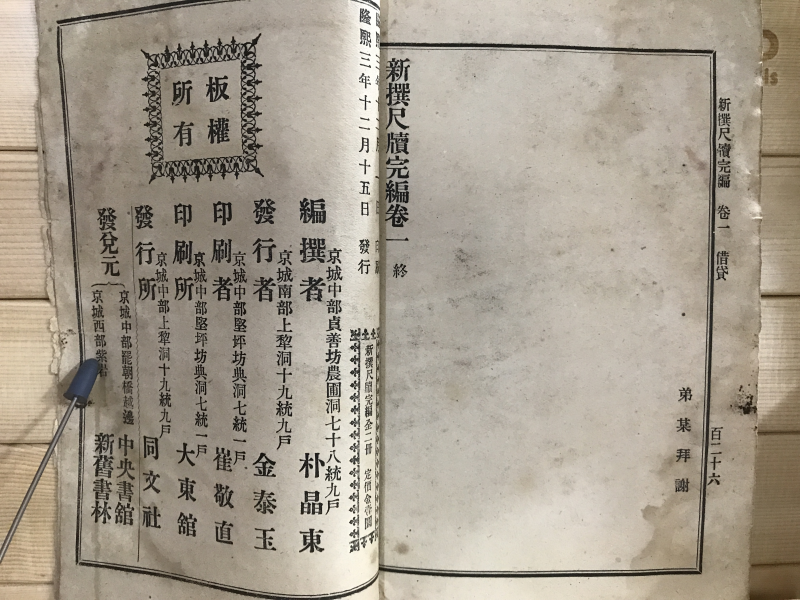 新撰尺牘完編 卷一 借貸
百二十六
弟某拜謝
新撰尺牘完編卷一 終
隆熙三年十二月十五日 發行
新撰尺牘完編全二冊 定價金壹圜
板權
所有
編撰者 京城中部貞善坊農圃洞七十八統九戶 朴晶東
發行者 京城南部上犂洞十九統九戶 金泰玉
印刷者 京城中部堅坪坊典洞七統一戶 崔敬直
印刷所 京城中部堅坪坊典洞七統一戶 大東舘
發行所 京城中部上犂洞十九統九戶 同文社
發兌元
京城中部罷朝橋越邊 中央書舘
京城西部紫岩 新舊書林